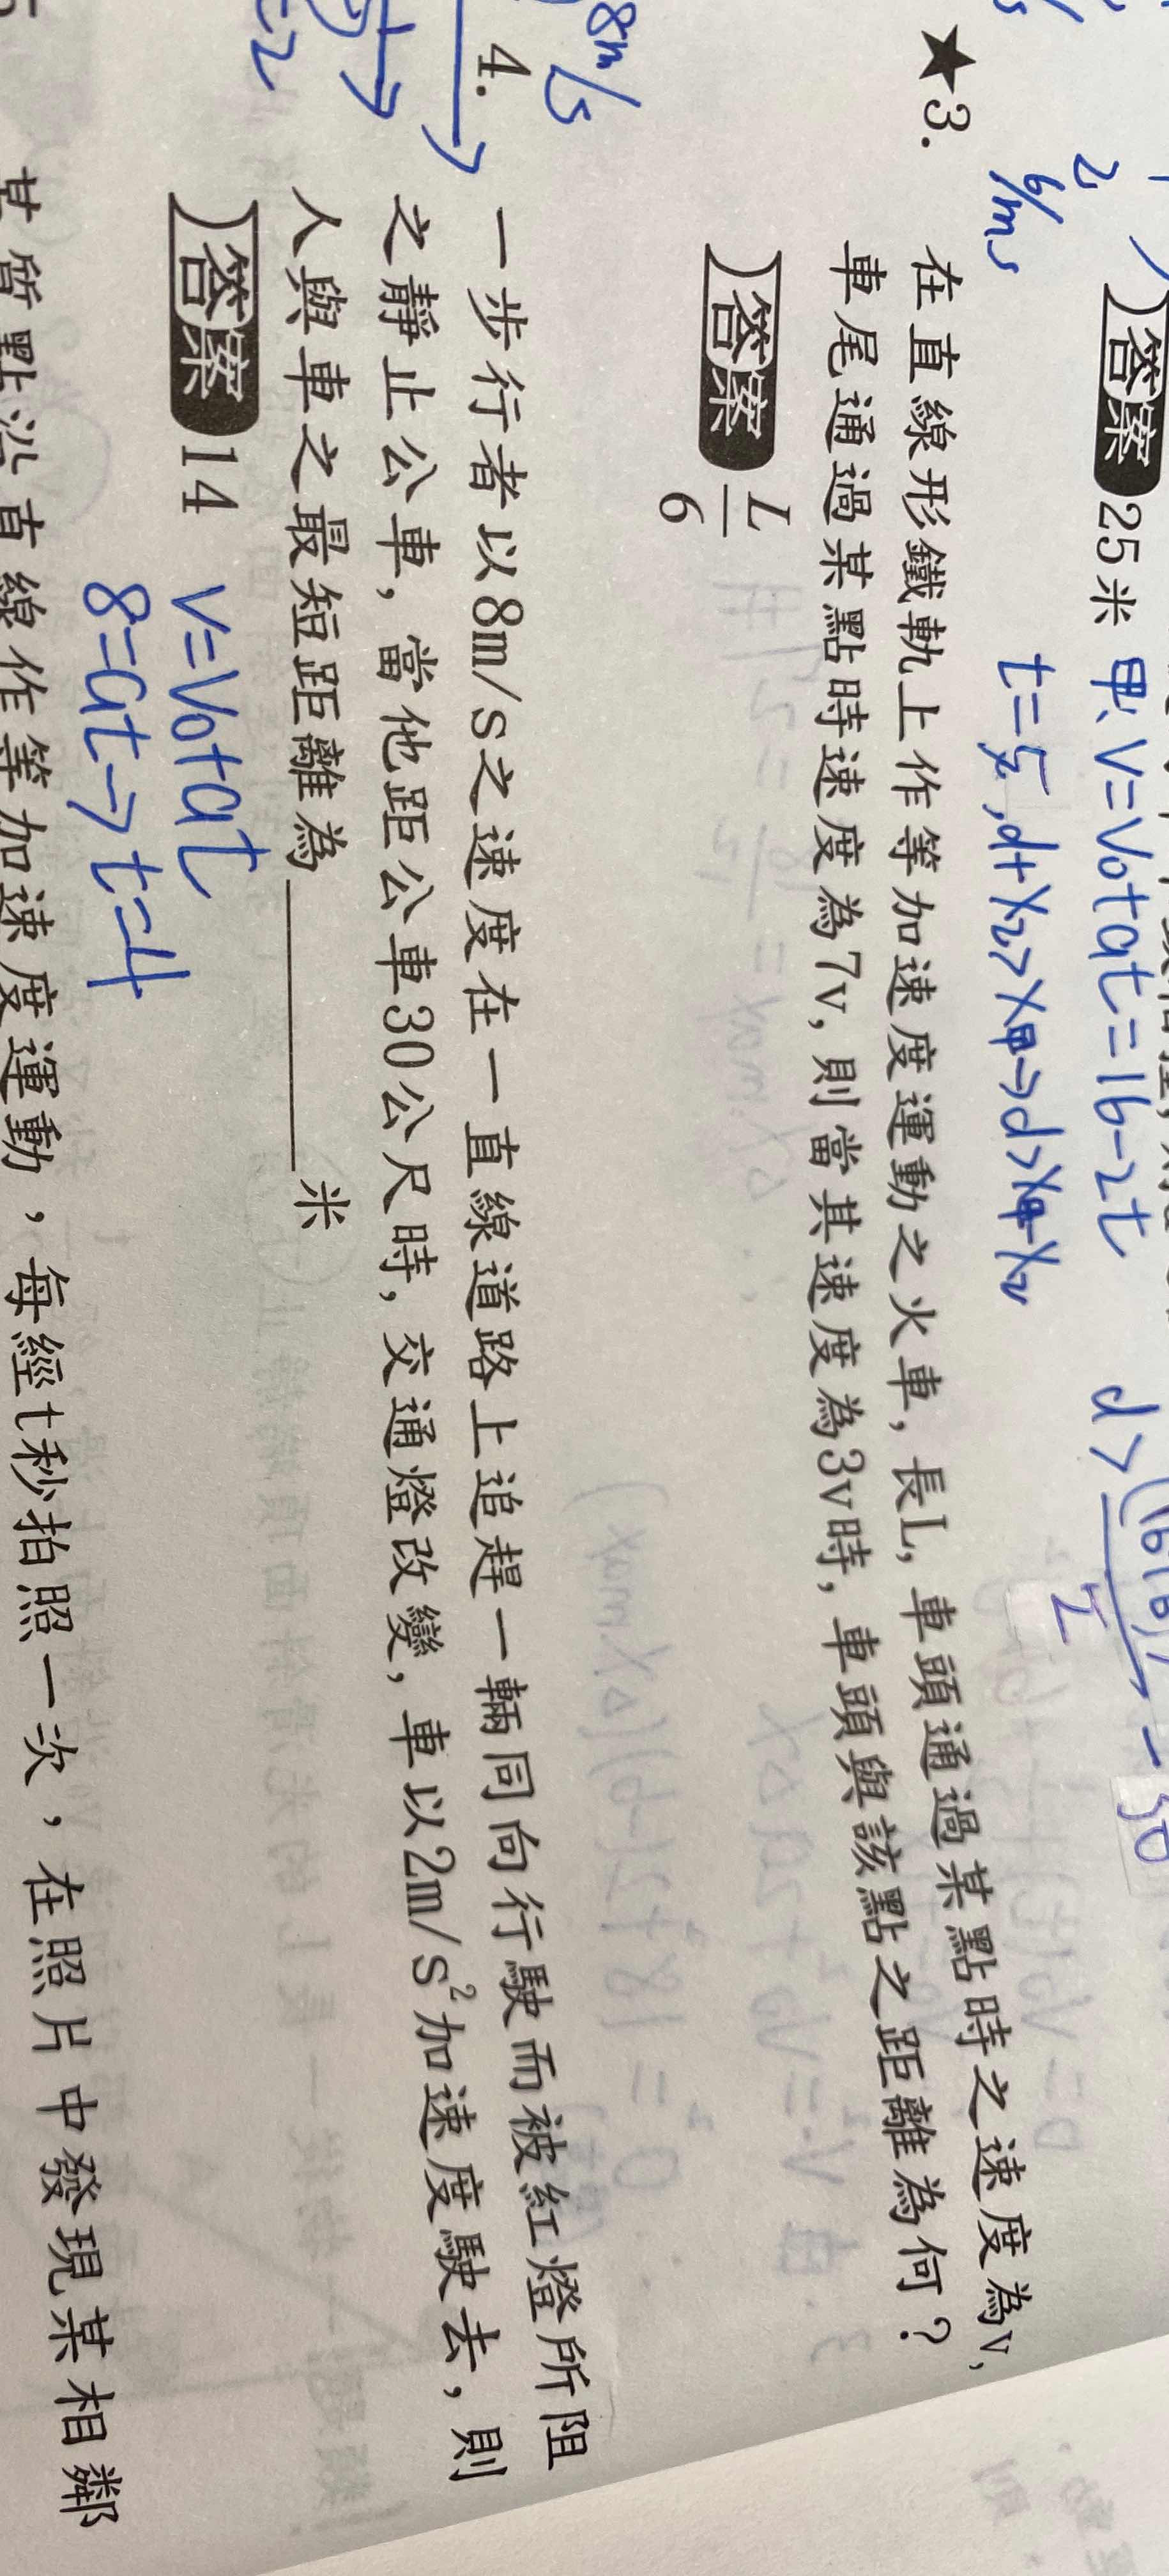 答案 25米 甲、V=V₀+at=16-2t
d>
6m/s
t=5, d+X乙>X甲→d>X甲-X乙
★3. 在直線形鐵軌上作等加速度運動之火車,長L,車頭通過某點時之速度為v,
車尾通過某點時速度為7v,則當其速度為3v時,車頭與該點之距離為何?
答案 L/6
8m/s
4. 一步行者以8m/s之速度在一直線道路上追趕一輛同向行駛而被紅燈所阻
之靜止公車,當他距公車30公尺時,交通燈改變,車以2m/s²加速度駛去,則
人與車之最短距離為________米
答案 14
V=V₀+at
8=at→t=4
某質點沿直線作等加速度運動,每經t秒拍照一次,在照片中發現某相鄰